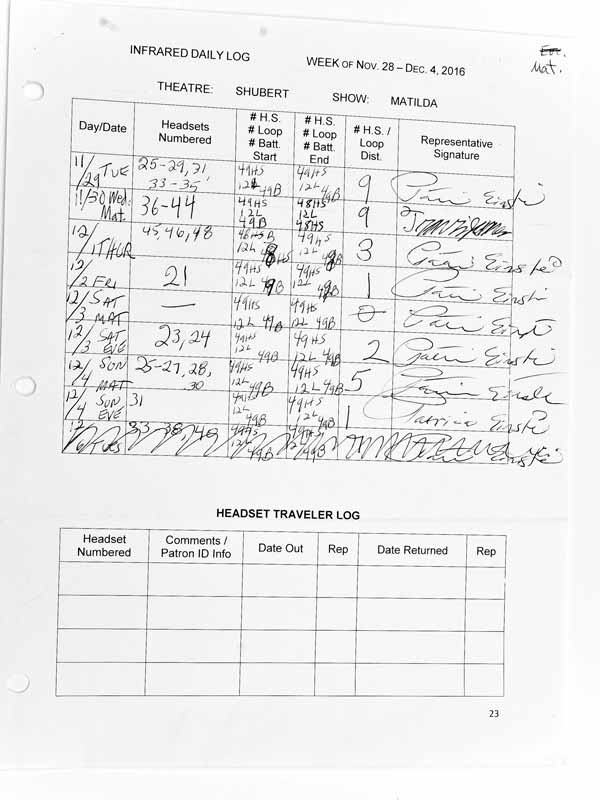 Mat.
INFRARED DAILY LOG WEEK OF NOV. 28 – DEC. 4, 2016
THEATRE: SHUBERT SHOW: MATILDA
Day/Date Headsets Numbered # H.S. # Loop # Batt. Start # H.S. # Loop # Batt. End # H.S. / Loop Dist. Representative Signature
11/29 TUE 25-29, 31 33-35 49HS 12L 49B 49HS 12L 49B 9
11/30 Wed. Mat. 36-44 49HS 12L 49B 48HS 12L 48HS 9
12/1 THUR 45, 46, 48 49HS 12L 3
12/2 FRI 21 49HS 12L 49HS 12L 1
12/3 SAT MAT — 49HS 12L 49B 49HS 12L 49B 0
12/3 SAT EVE 23, 24 49HS 12L 49B 49HS 12L 49B 2
12/4 SUN MAT 25-27, 28, 30 49HS 12L 49B 49HS 12L 49B 5
12/4 SUN EVE 31 49HS 12L 49B 49HS 12L 49B 1 Patricia Einstie
12/6 TUES 49HS 12L 49B 49HS 12L 49B
HEADSET TRAVELER LOG
Headset Numbered Comments / Patron ID Info Date Out Rep Date Returned Rep
23